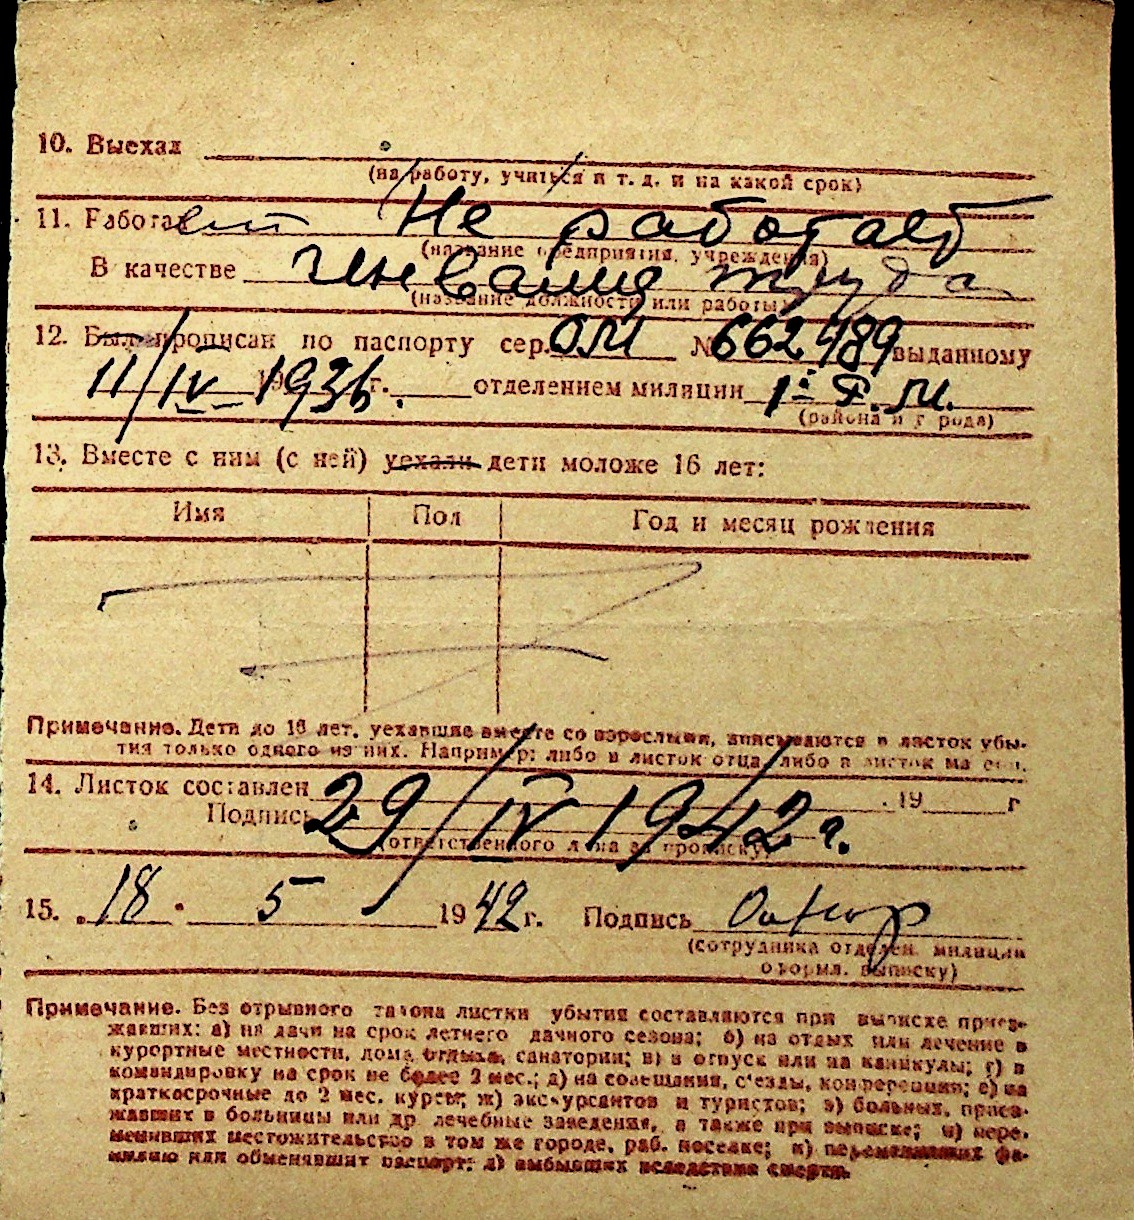 10. Выехал
(на работу, учиться и т. д. и на какой срок)
11. Работает Не работает
(название предприятия, учреждения)
В качестве инвалид труда
(название должности или работы)
12. Был прописан по паспорту сер. ОМ № 662489 выданному
11/IV 19 1936 г. отделением милиции 1е Г.М.
(района и города)
13. Вместе с ним (с ней) уехали дети моложе 16 лет:
Имя Пол Год и месяц рождения
Примечание. Дети до 16 лет, уехавшие вместе со взрослыми, вписываются в листок убы-
тия только одного из них. Например: либо в листок отца, либо в листок матери.
14. Листок составлен 29/IV 1942 г. 19 г
Подпись
(ответственного лица за прописку)
15. 18 5 1942 г. Подпись
(сотрудника отделен. милиции
оформл. выписку)
Примечание. Без отрывного талона листки убытия составляются при выписке приез-
жавших: а) на дачи на срок летнего дачного сезона; б) на отдых или лечение в
курортные местности, дома отдыха, санатории; в) в отпуск или на каникулы; г) в
командировку на срок не более 2 мес.; д) на совещания, с'езды, конференции; е) на
краткосрочные до 2 мес. курсы; ж) экскурсантов и туристов; з) больных, приез-
жавших в больницы или др лечебные заведения, а также при выписке; и) пере-
менивших местожительство в том же городе, раб. поселке; к) переменивших фа-
милию или обменявших паспорт; л) выбывших вследствие смерти.